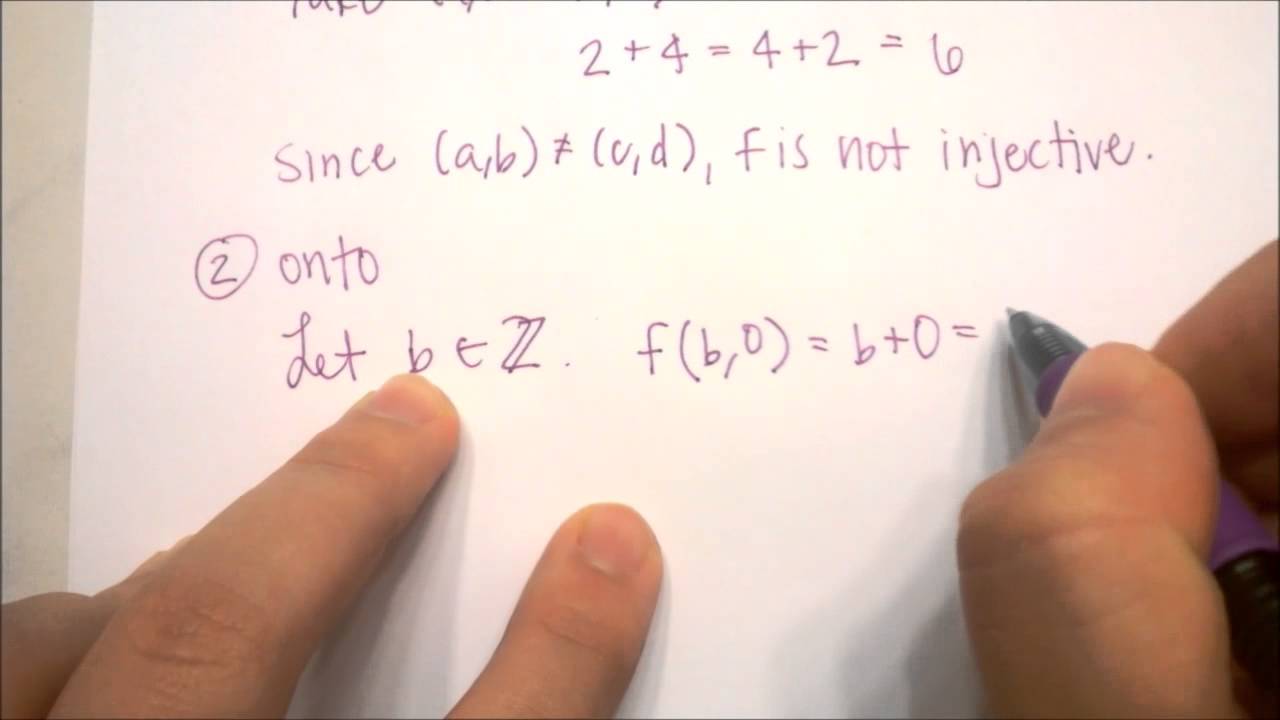 2 + 4 = 4 + 2 = 6
since (a,b) ≠ (c,d), f is not injective.
② onto
Let b ∈ ℤ. f(b,0) = b+0 =